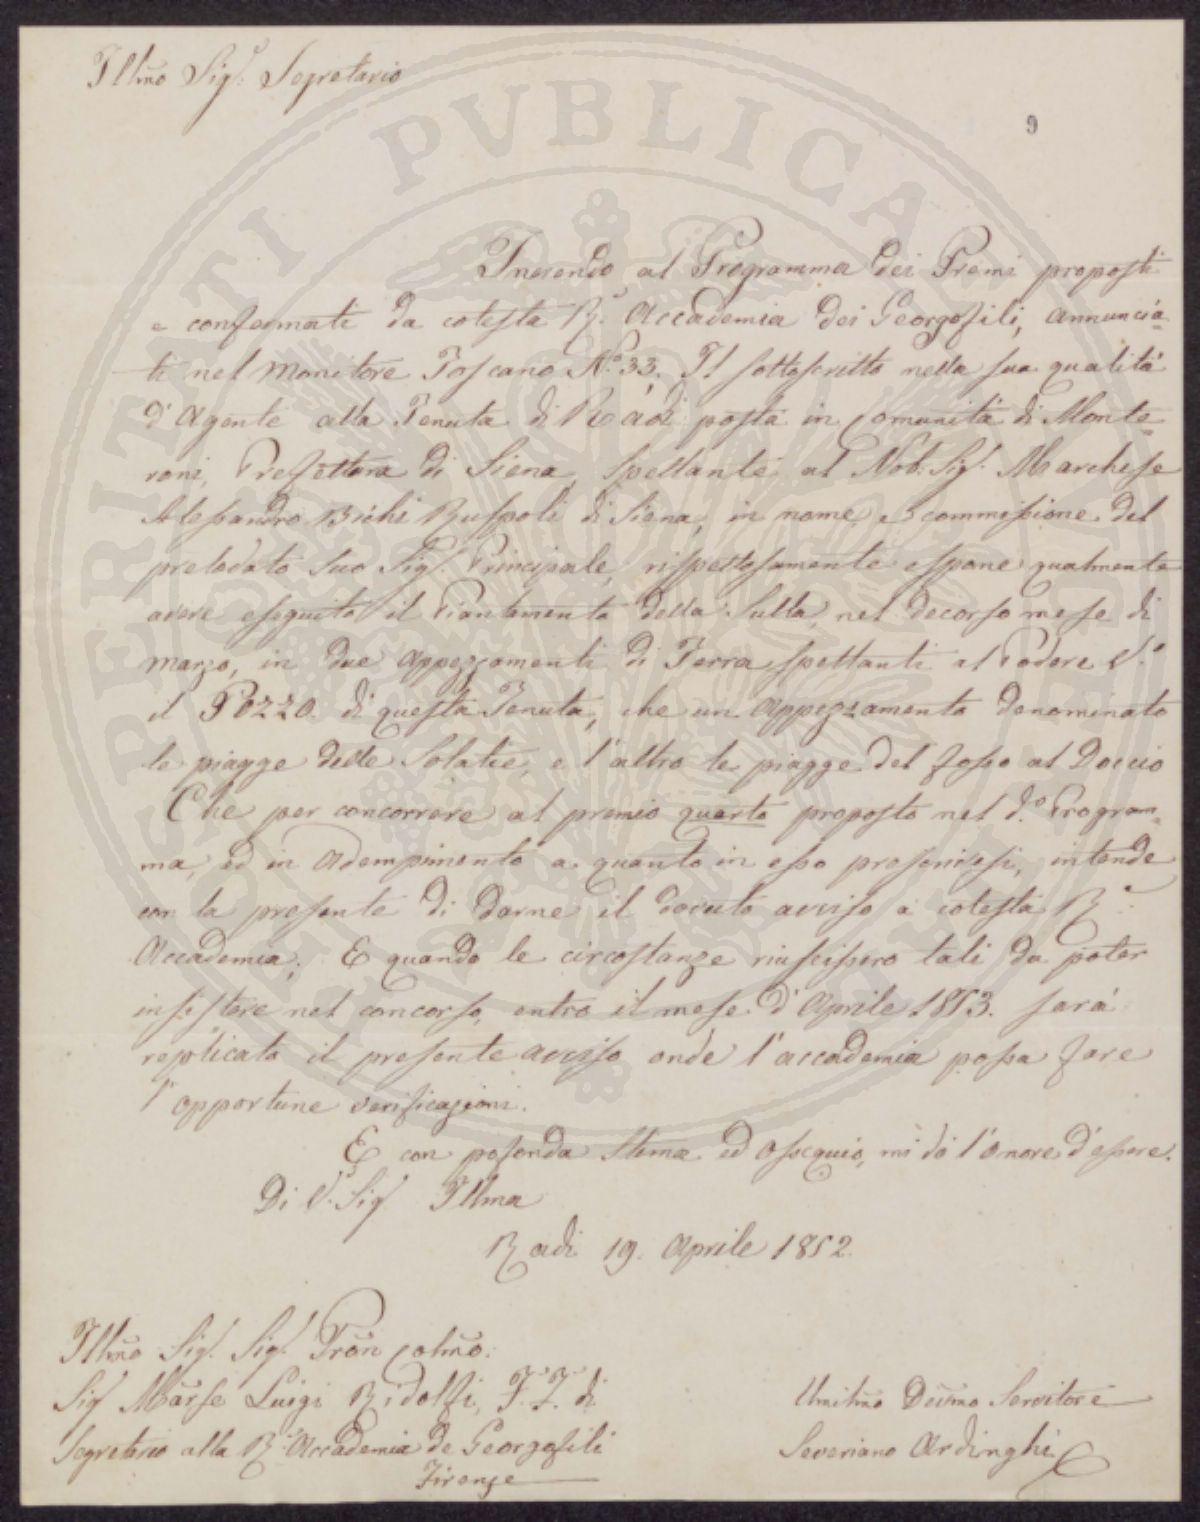 Illmo Sigr. Segretario
9
Inerendo al Programma dei Premi proposti
e confermati da cotesta R. Accademia dei Georgofili, annuncia=
ti nel Monitore Toscano No. 33. Il sottoscritto nella sua qualità
d'Agente alla Tenuta di Radi posta in Comunità di Monte=
roni, Prefettura di Siena, spettante al Nob. Sigr. Marchese
Alessandro Bichi Ruspoli di Siena, in nome, e commissione del
prelodato suo Sigr. Principale, rispettosamente espone qualmente
avere eseguito il Piantamento della Sulla, nel decorso mese di
Marzo, in due Appezzamenti di Terra spettanti al Podere
il Pozzo. di questa Tenuta, che un Appezzamento denominato
le piagge delle Solatie, e l'altro le piagge del fosso al Doccio
Che per concorrere al premio quarto proposto nel do. Program=
ma, ed in adempimento a quanto in esso prescrivesi, intende
con la presente di darne il dovuto avviso a cotesta R.
Accademia; E quando le circostanze riuscissero tali da poter
insistere nel concorso, entro il mese d'Aprile 1853. sarà
replicato il presente avviso onde l'accademia possa fare
l'opportune verificazioni.
E con profonda stima ed ossequio, mi dò l'onore d'essere.
Di V. Sig. Illma
Radi 19. Aprile 1852.
Illmo Sigr. Sigr. Pron Colmo.
Sigr Marse Luigi Ridolfi, F. F. di
Segretario alla R. Accademia de Georgofili
Firenze
Umilmo Devmo Servitore
Severiano Ardinghi
PROSPERITATI PVBLICAE